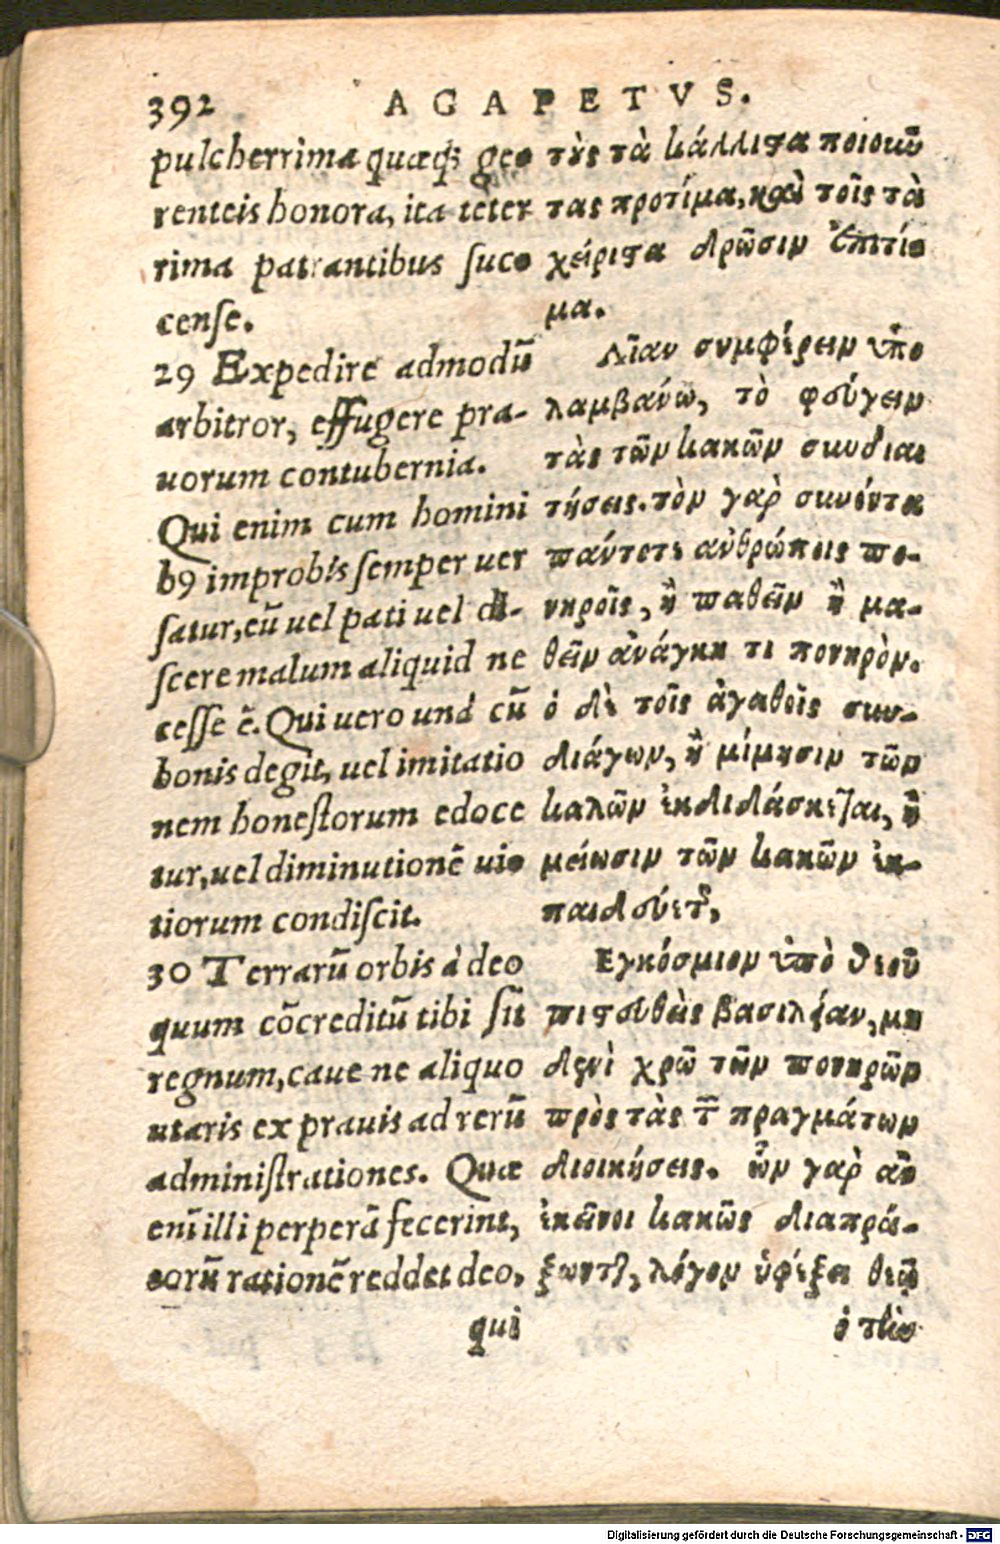 392 AGAPETVS.
pulcherrima quæq; ge-
renteis honora, ita teter
rima patrantibus suc-
cense.
29 Expedire admodũ
arbitror, effugere pra-
uorum contubernia.
Qui enim cum homini
b9 improbis semper uer
satur, eũ uel pati uel di-
scere malum aliquid ne
cesse ẽ. Qui uero unà cũ
bonis degit, uel imitatio
nem honestorum edoce
tur, uel diminutionẽ ui-
tiorum condiscit.
30 Terrarũ orbis à deo
quum cõcreditũ tibi sit
regnum, caue ne aliquo
utaris ex prauis ad rerũ
administrationes. Quæ
enĩ illi perperã fecerint,
eorũ rationẽ reddet deo,
qui
τὺς τὰ κάλλιστα ποιοῦν
τας προτίμα, καὶ τοῖς τὰ
χείριστα δρῶσιν ἐπιτί-
μα.
Λίαν συμφέρειν ὑπο
λαμβάνω, τὸ φεύγειν
τὰς τῶν κακῶν συνδιαι
τήσεις. τὸν γὰρ συνόντα
πάντοτε ἀνθρώποις πο-
νηροῖς, ἢ παθεῖν ἢ μα-
θεῖν ἀνάγκη τι πονηρὸν.
ὁ δὲ τοῖς ἀγαθοῖς συν-
διάγων, ἢ μίμησιν τῶν
καλῶν ἐκδιδάσκεται, ἢ
μείωσιν τῶν κακῶν ἐκ-
παιδεύεται,
Εγκόσμιον ὑπὸ θεοῦ
πιστευθεὶς βασιλείαν, μη
δενὶ χρῶ τῶν πονηρῶν
πρὸς τὰς τῶν πραγμάτων
διοικήσεις. ὧν γὰρ ἂν
ἐκεῖνοι κακῶς διαπρά-
ξωνται, λόγον ὑφέξει θεῷ
ὁ τὴν
Digitalisierung gefördert durch die Deutsche Forschungsgemeinschaft - DFG